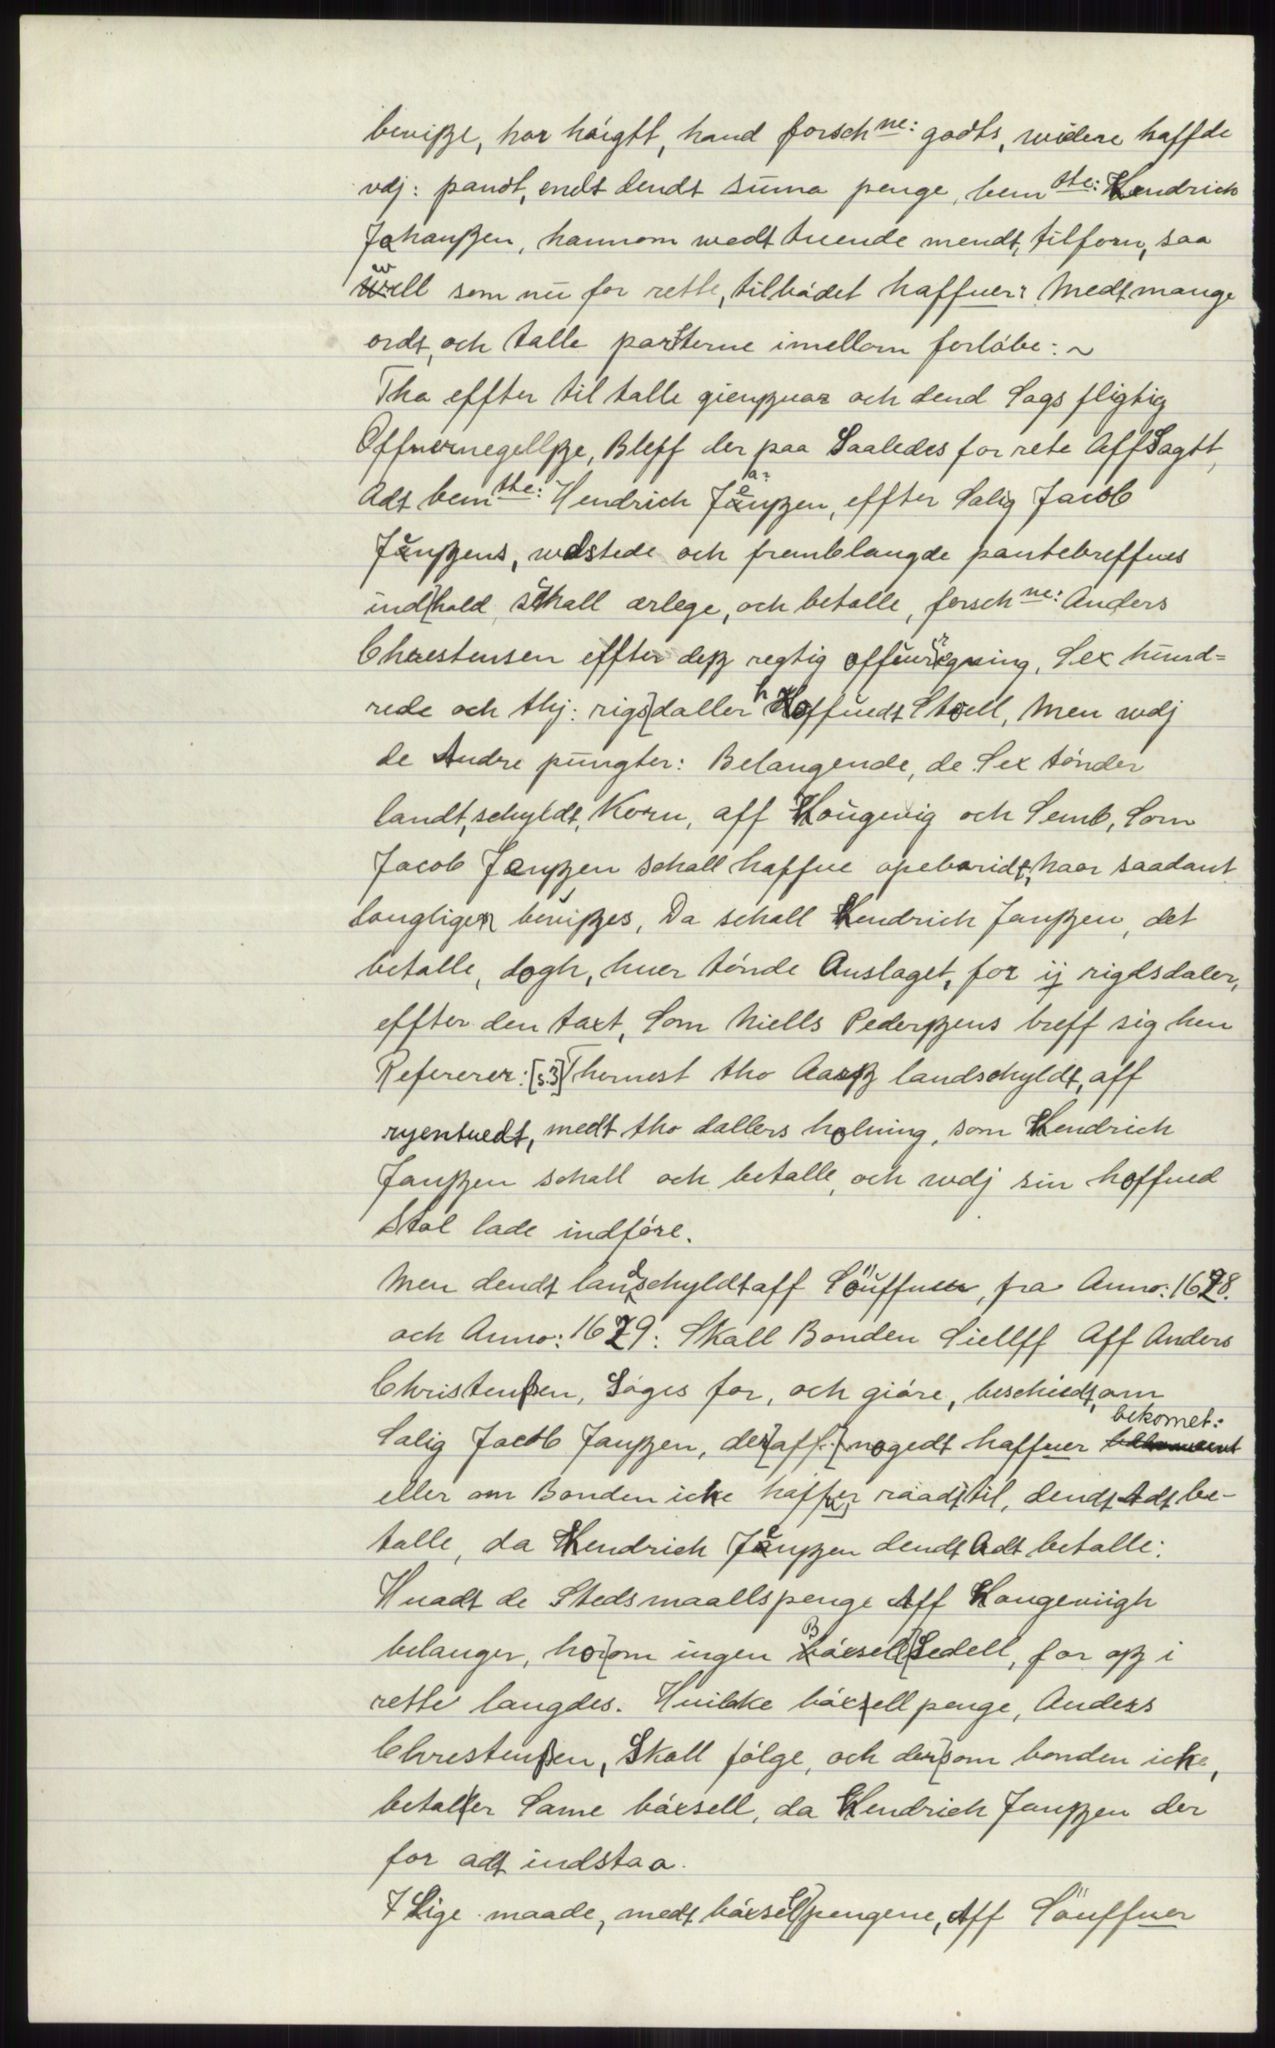 beviʒe, hor høigtt, hand forsch ne: godts, widere haffde
vdj: pandt, endt dendt suma penge, bem the: Hendrich
Johanʒen, hannom wedt tuende mendt, tilforn, saa
well som nu for rette, tilbódet haffuer: Medt mange
ordt, och talle parterne imellom forlóbe: ~
Tha effter til talle gienʒuar och dend Sags fligtig
Offueruegellʒe, Bleff der paa Saaledes for rete AffSagtt,
Adt bem the: Hendrich Janʒen, effter Salig Jacob
Janʒens, wdstede och fremblangde pantebreffues
ind}hold, schall ærlege, och betalle, forsch ne: Anders
Chrestensen effter deʒ regtig offuerregning, Sex hund=
rede och thj: rigs}daller hoffuedt Stoell, Men wdj
de Andre pungter: Belangende, de Sex tónder
landt,schyldt, Korn, aff Hougewig och Semb, Som
Jacob Janʒen schall haffue opeboridt, haar saadant
laugligen beuiʒes, Da schall Hendrich Janʒen, det
betalle, dogh, huer tónde Anslaget, for ij rigdsdaler,
effter den taxt, Som Niells Pederʒens breff sig hen
Refererer: [s.3] Thernest tho Aarʒ landschyldt, aff
ryentuedt, medt tho dallers holning, som Hendrich
Janʒen schall och betalle, och wdj sin hoffued
Stol lade indfóre.
Men dendt landschyldt aff Söuffuer, fra Anno: 1678.
och Anno: 1679: Skall Bonden Siellff Aff Anders
Christenßen, Sóges for, och gióre, beschiedt, om
Salig Jacob Janʒen, der}aff.}nogedt haffuer bekomet:
eller om Bonden icke haffuer raadt til, dendt Adt be-
talle, da Hendrich Janʒen dendt Adt betalle:
Huadt de Stedsmaallspenge Aff Hougewiigh
belanger, hor}om ingen Bóxsell}Sedell, for oʒ i
rette langdes. Huilcke bóxsell penge, Anders
Chrestenßen, Skall fólge, och der}som bonden icke,
betaler Same bóxsell, da Hendrich Janʒen der
for adt indstaa.
I Lige maade, medt bóxsell}pengene, Aff Söuffuer